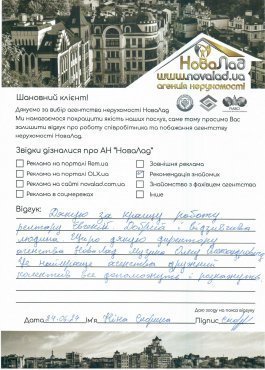 НоваЛад
www.novalad.ua
агенція нерухомості
Шановний клієнт!
Дякуємо за вибір агентства нерухомості НоваЛад.
Ми намагаємося покращити якість наших послуг, саме тому просимо Вас
залишити відгук про роботу співробітників та побажання агентству
нерухомості НоваЛад.
Звідки дізналися про АН "НоваЛад"
Реклама на порталі Rem.ua
Зовнішня реклама
Реклама на порталі OLX.ua
Рекомендація знайомих
Реклама на сайті novalad.com.ua
Знайомство з фахівцем агентства
Реклама в соцмережах
Інше
Відгук: Дякую за кращу роботу
ріелтору Євгенію
людина Щиро дякую директору
агенства НоваЛад
Це найкраще агенство дружній
колектив все допоможуть і розкажуть.
Даю згоду на показ відгуку
Дата 24.06.24 Ім'я Ніна Підпис